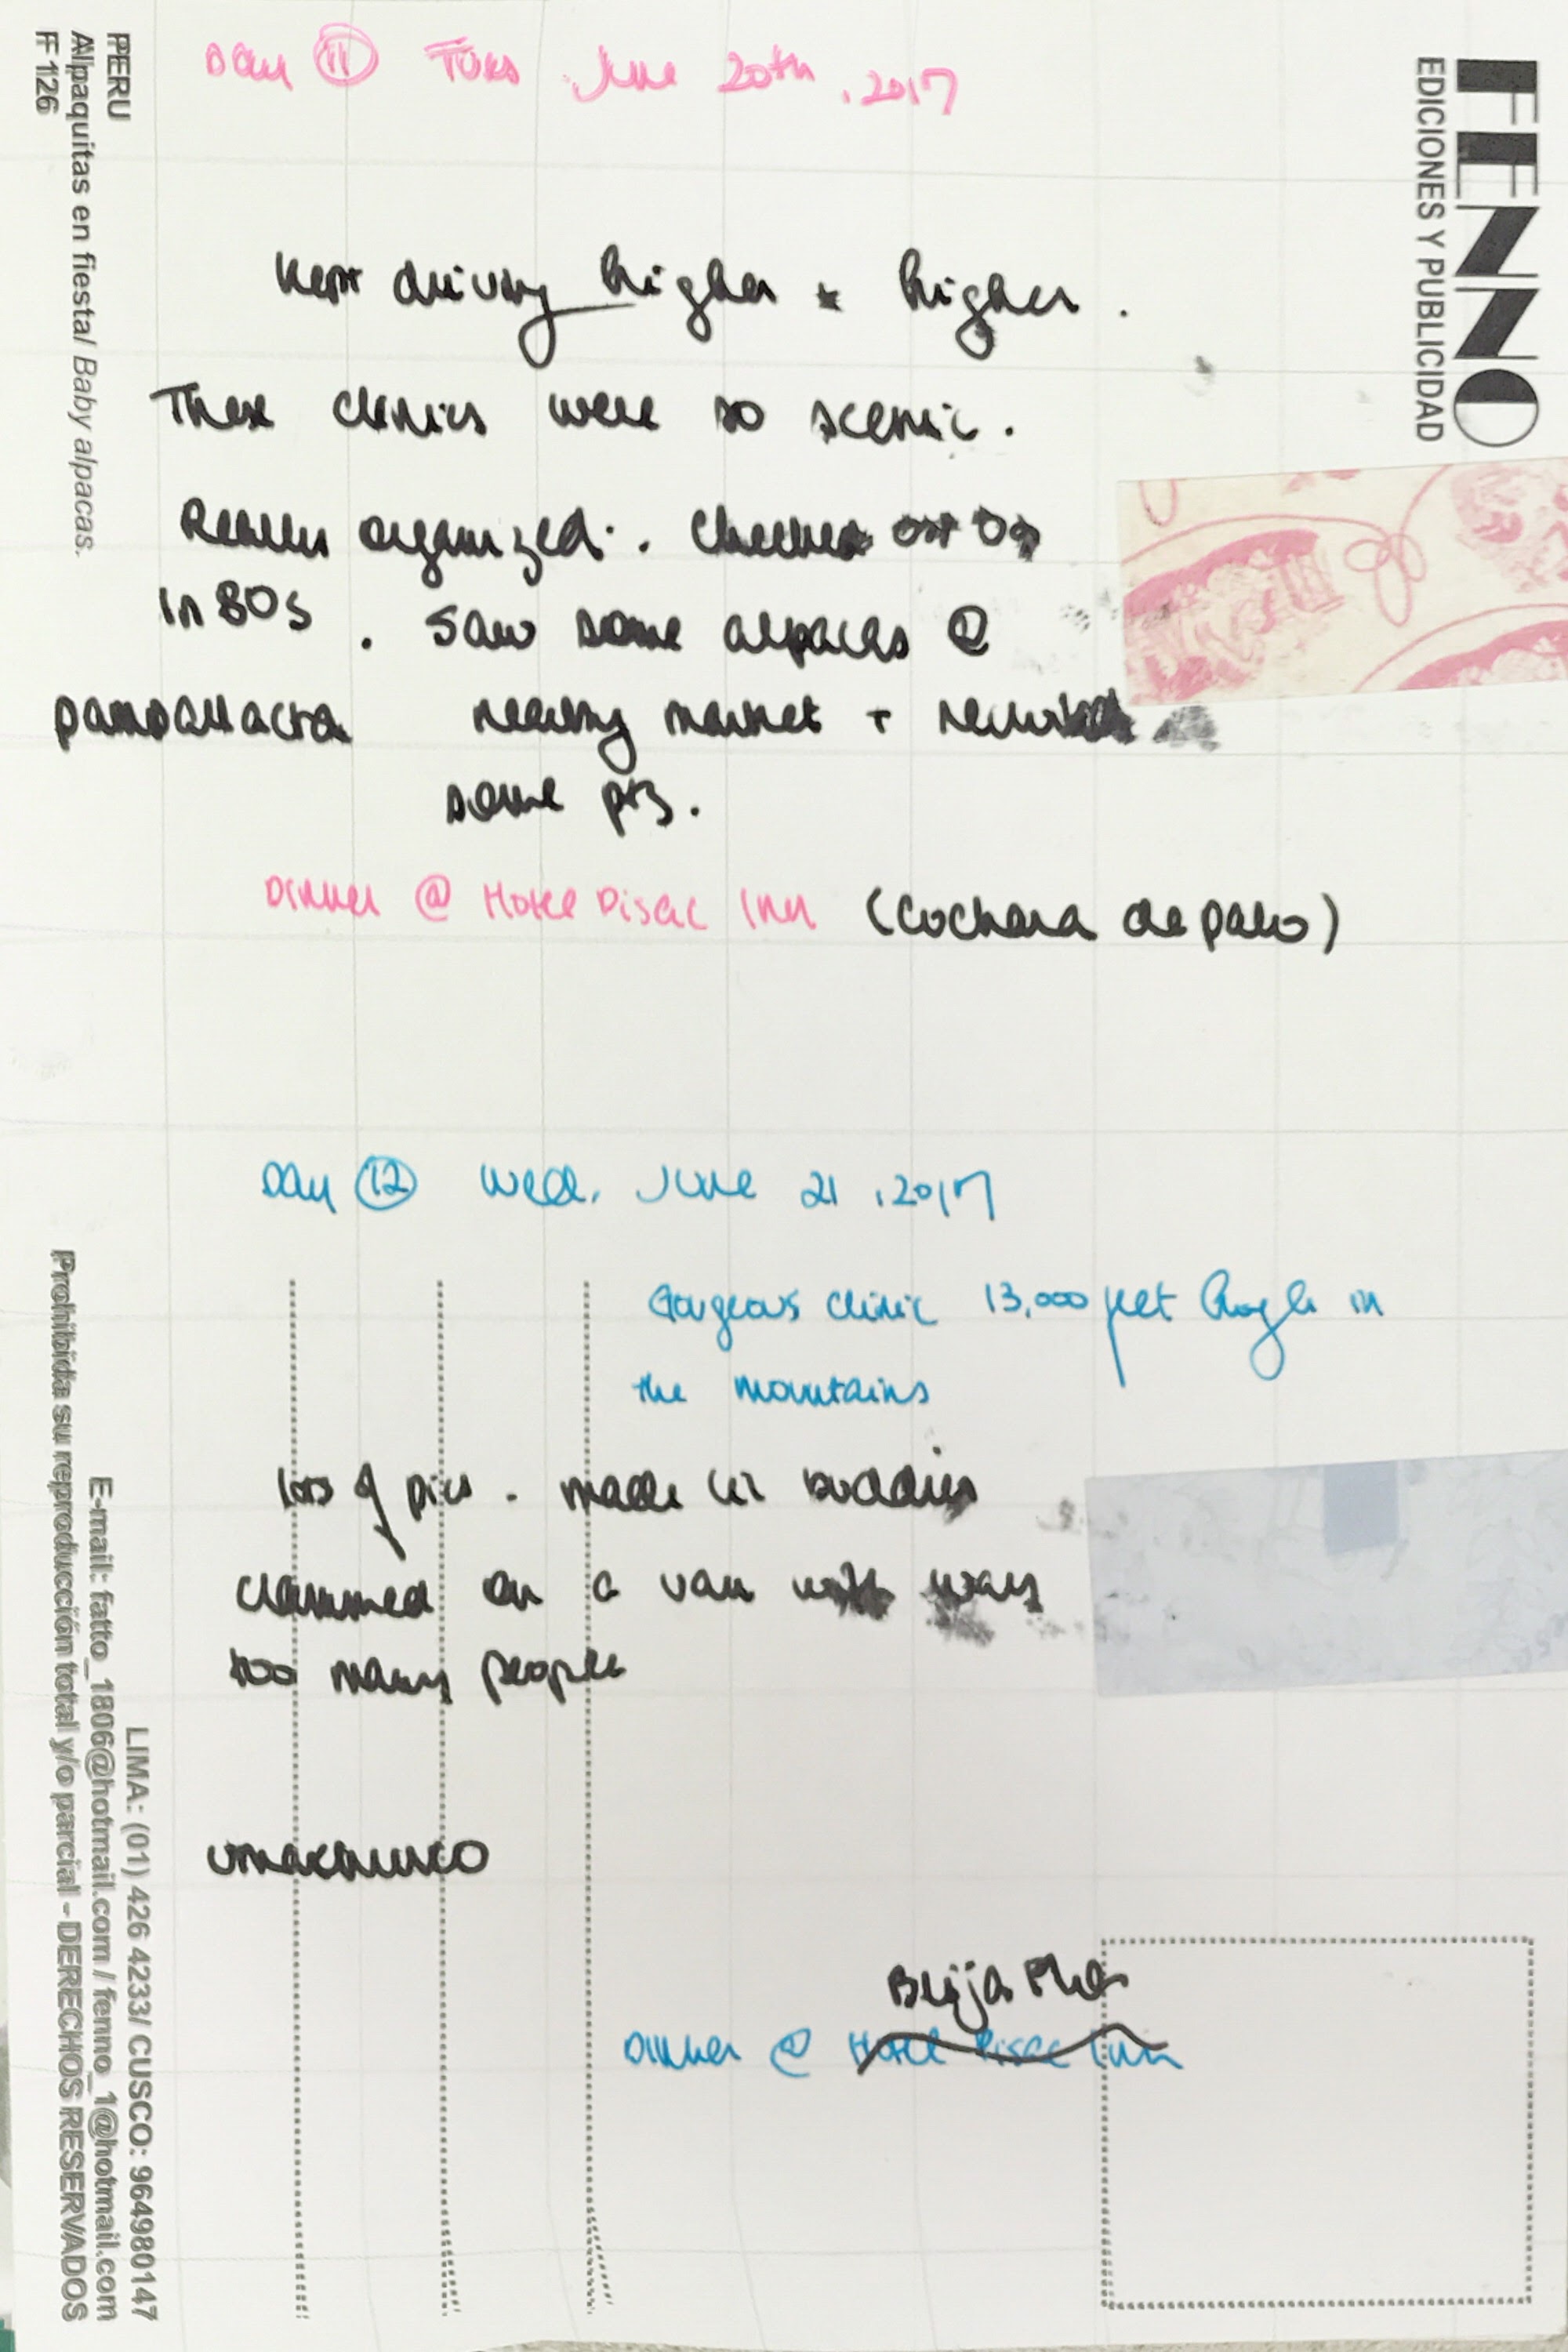 PERU
Alpaquitas en fiesta/ Baby alpacas.
F 126
FENNO
EDICIONES Y PUBLICIDAD
Day 11 Tues June 20th, 2017
Kept driving higher + higher.
These clinics were so scenic.
Really organized. Checked our O2
in 80s. Saw some alpacas @
pampallacta nearby market +
some pts.
Dinner @ Hotel Pisac Inn (cuchara de palo)
Day 12 Wed. June 21, 2017
Gorgeous clinic 13,000 feet high in
the mountains
lots of pics. made lil buddies
crammed on a van with way
too many people
umachurco
Dinner @ Hotel Pisac Inn
LIMA: (01) 426 4233/ CUSCO: 964980147
E-mail: fatto_1806@hotmail.com / fenno_1@hotmail.com
Prohibida su reproducción total y/o parcial - DERECHOS RESERVADOS